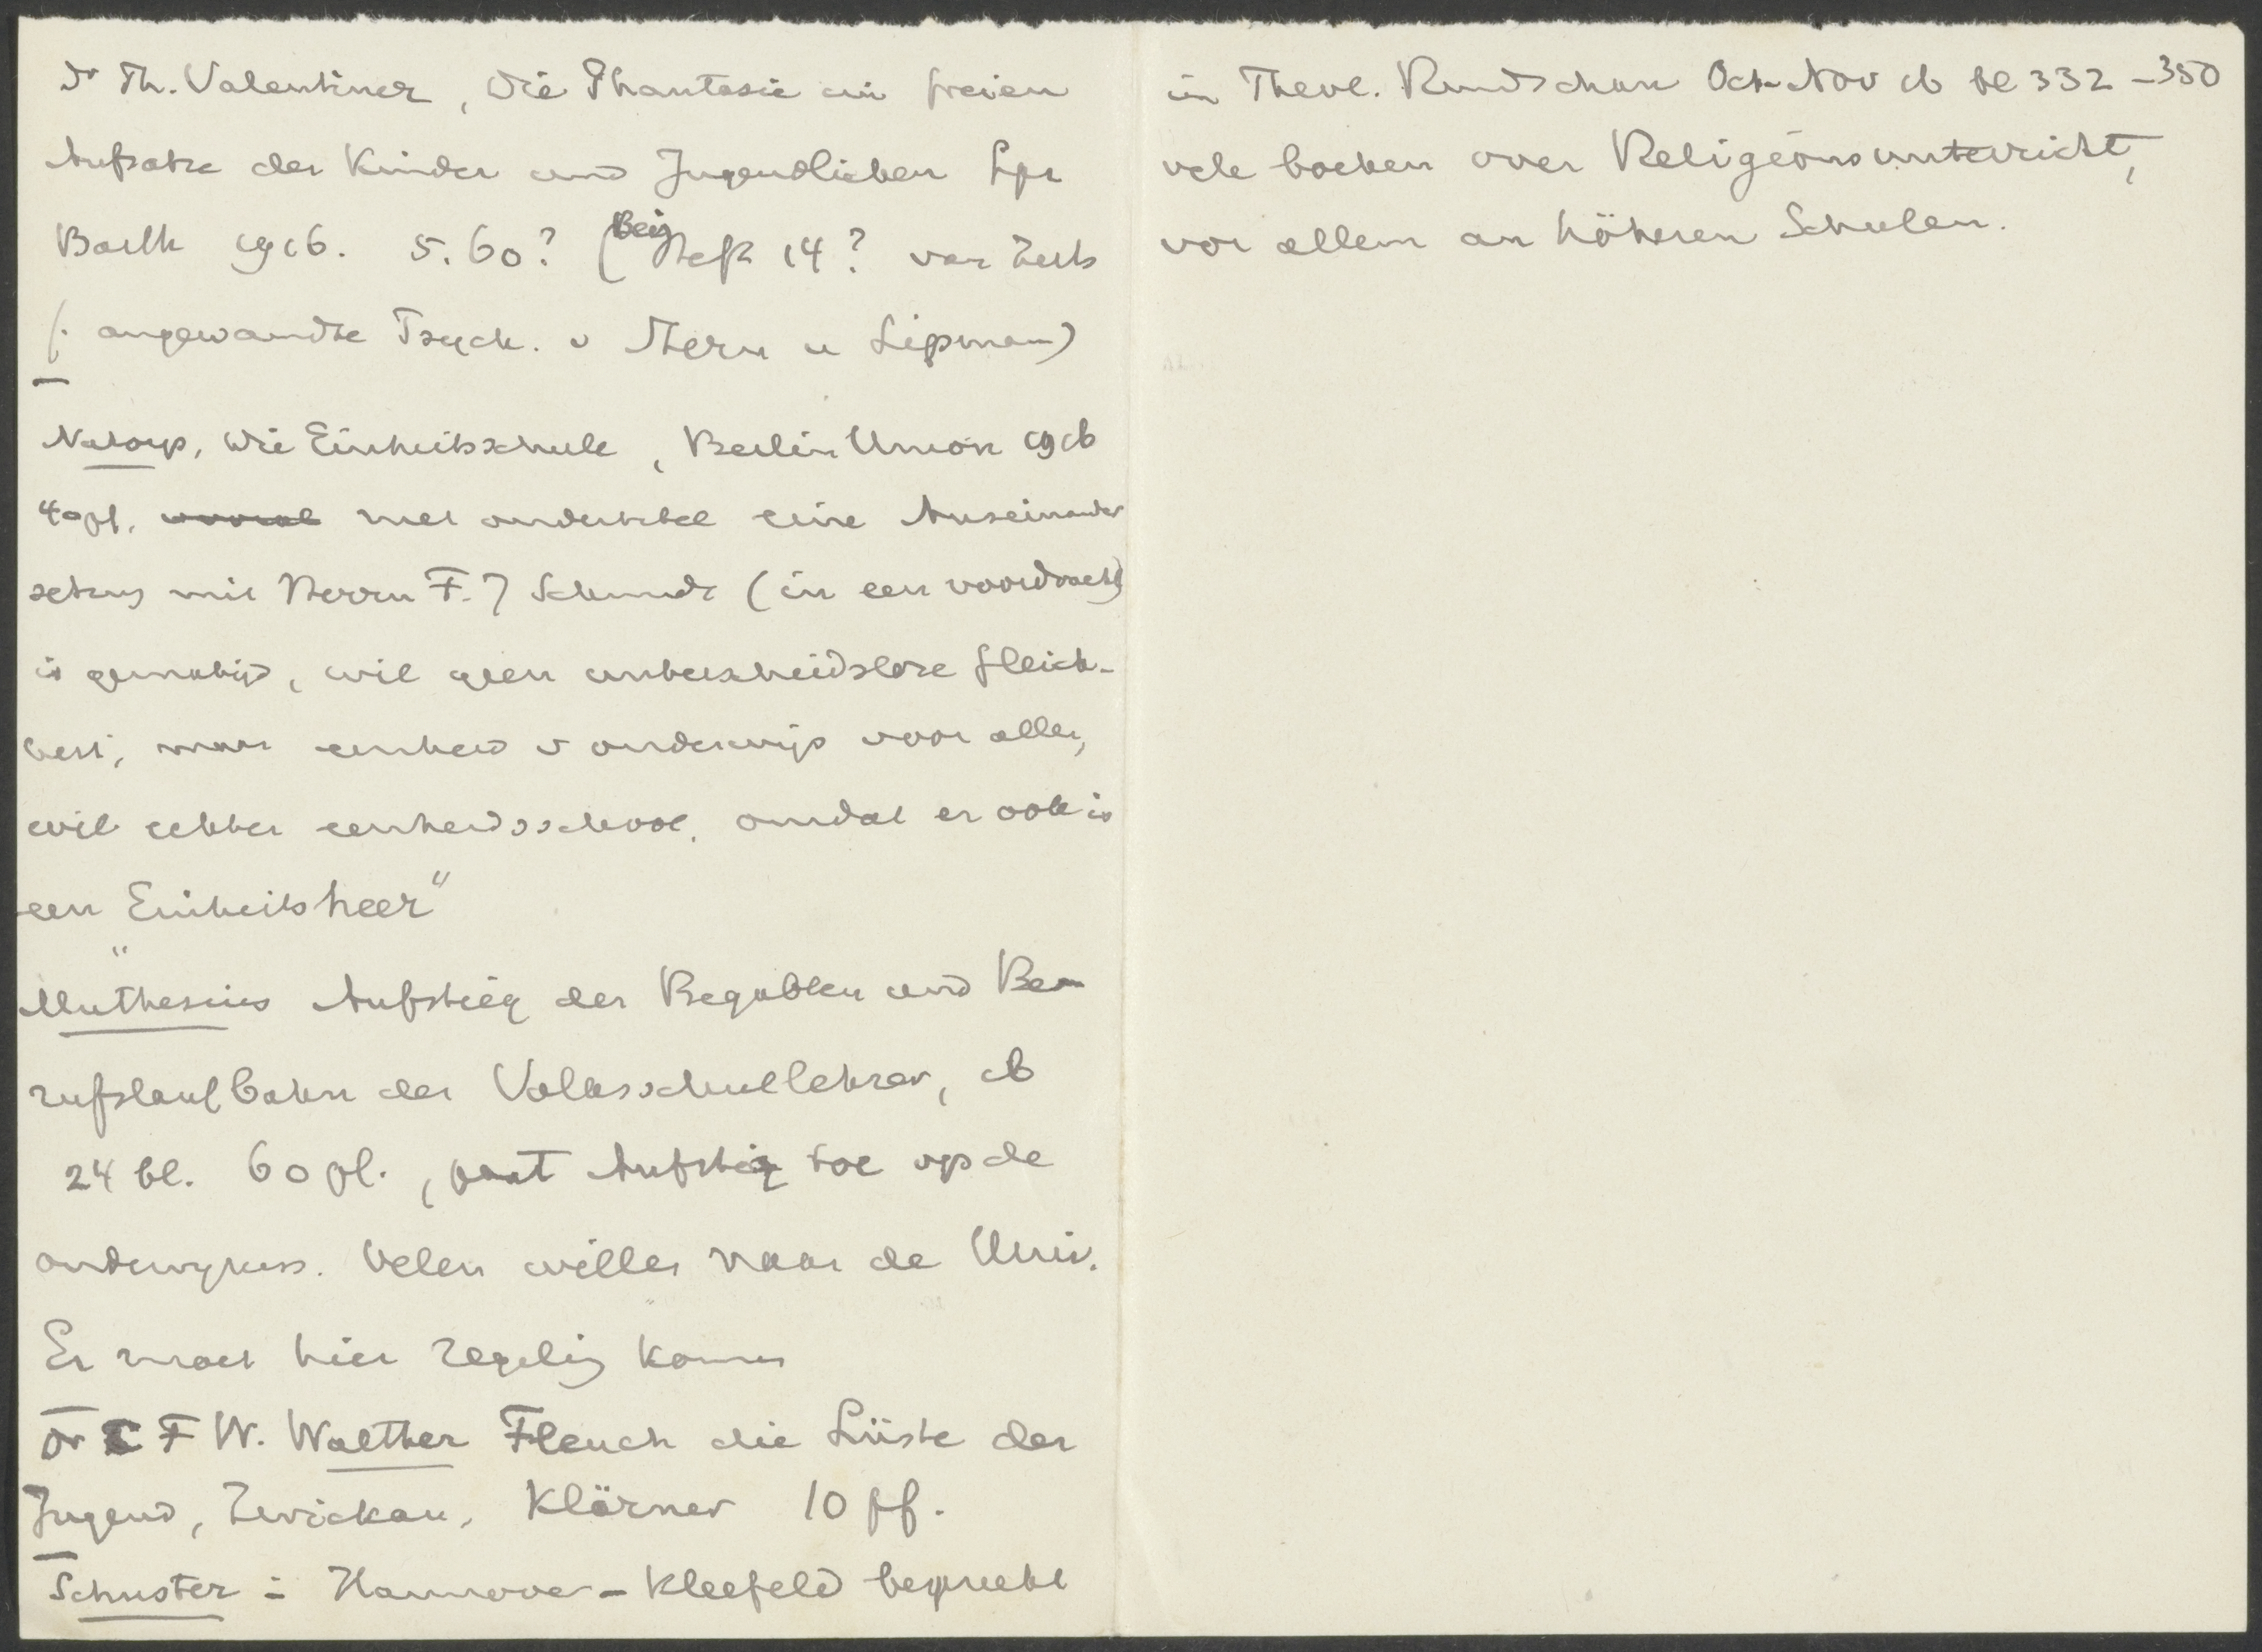 Dr Th. Valentiner, Die Phantasie im freien
Aufsatze der Kinder und Jugendlichen Lpz
Barth 1916. 5.60? (Beiheft 14? van Zeits
f. angewandte Psych. v Stern u Lipman)
Natorp, Die Einheitsschule, Berlin Union 1916
40 pf. met ondertitel eine Auseinander
setzung mit Herrn F. J Schmidt (in een voordracht)
is gematigd, wil geen unterscheidslose Gleich-
heit, maar eenheid v onderwijs voor allen,
wil echter eenheidsschool, omdat er ook is
een "Einheitsheer"
Muthesius Aufstieg der Begabten und Be
rufslaufbahn der Volksschullehrer, 16
24 bl. 60 pf., past Aufstieg toe op de
onderwyzers. Velen willen naar de Univ.
Er moet hier regeling komen
Dr F W. Walther Fleuch die Lüste der
Jugend, Zwickau, Klärner 10 pf.
Schuster in Hannover-Kleefeld bespreekt
in Theol. Rundschau Oct-Nov 16 bl 332-350
vele boeken over Religionsunterricht,
vor allem an höheren Schulen.